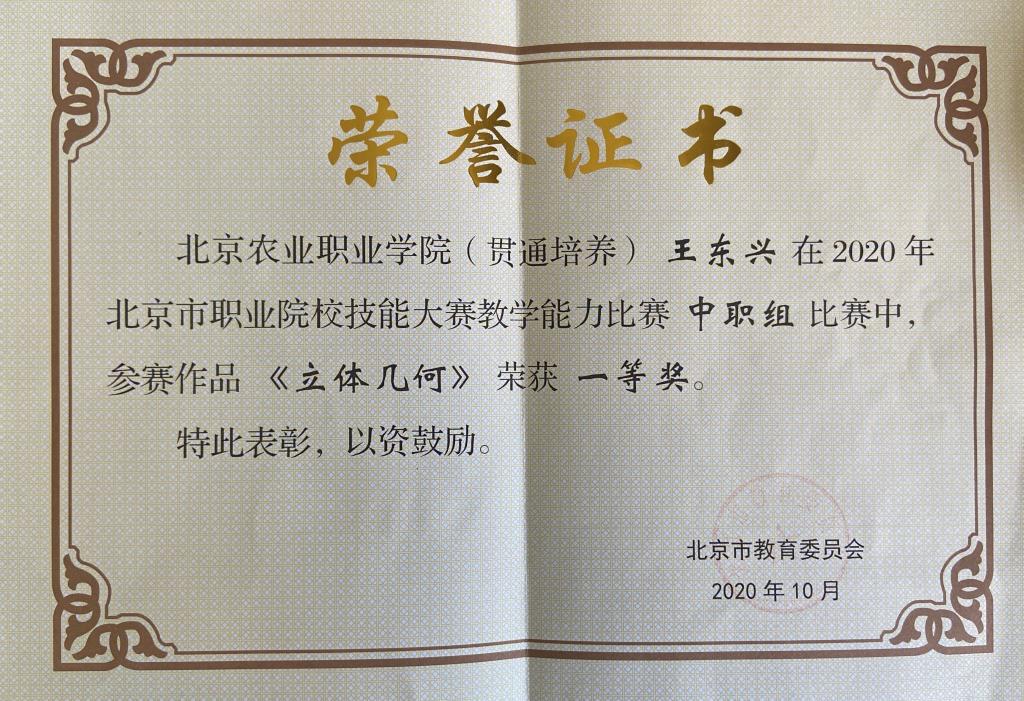 荣誉证书
北京农业职业学院（贯通培养） 王东兴 在 2020 年
北京市职业院校技能大赛教学能力比赛 中职组 比赛中，
参赛作品 《立体几何》 荣获 一等奖。
特此表彰，以资鼓励。
北京市教育委员会
2020 年 10 月